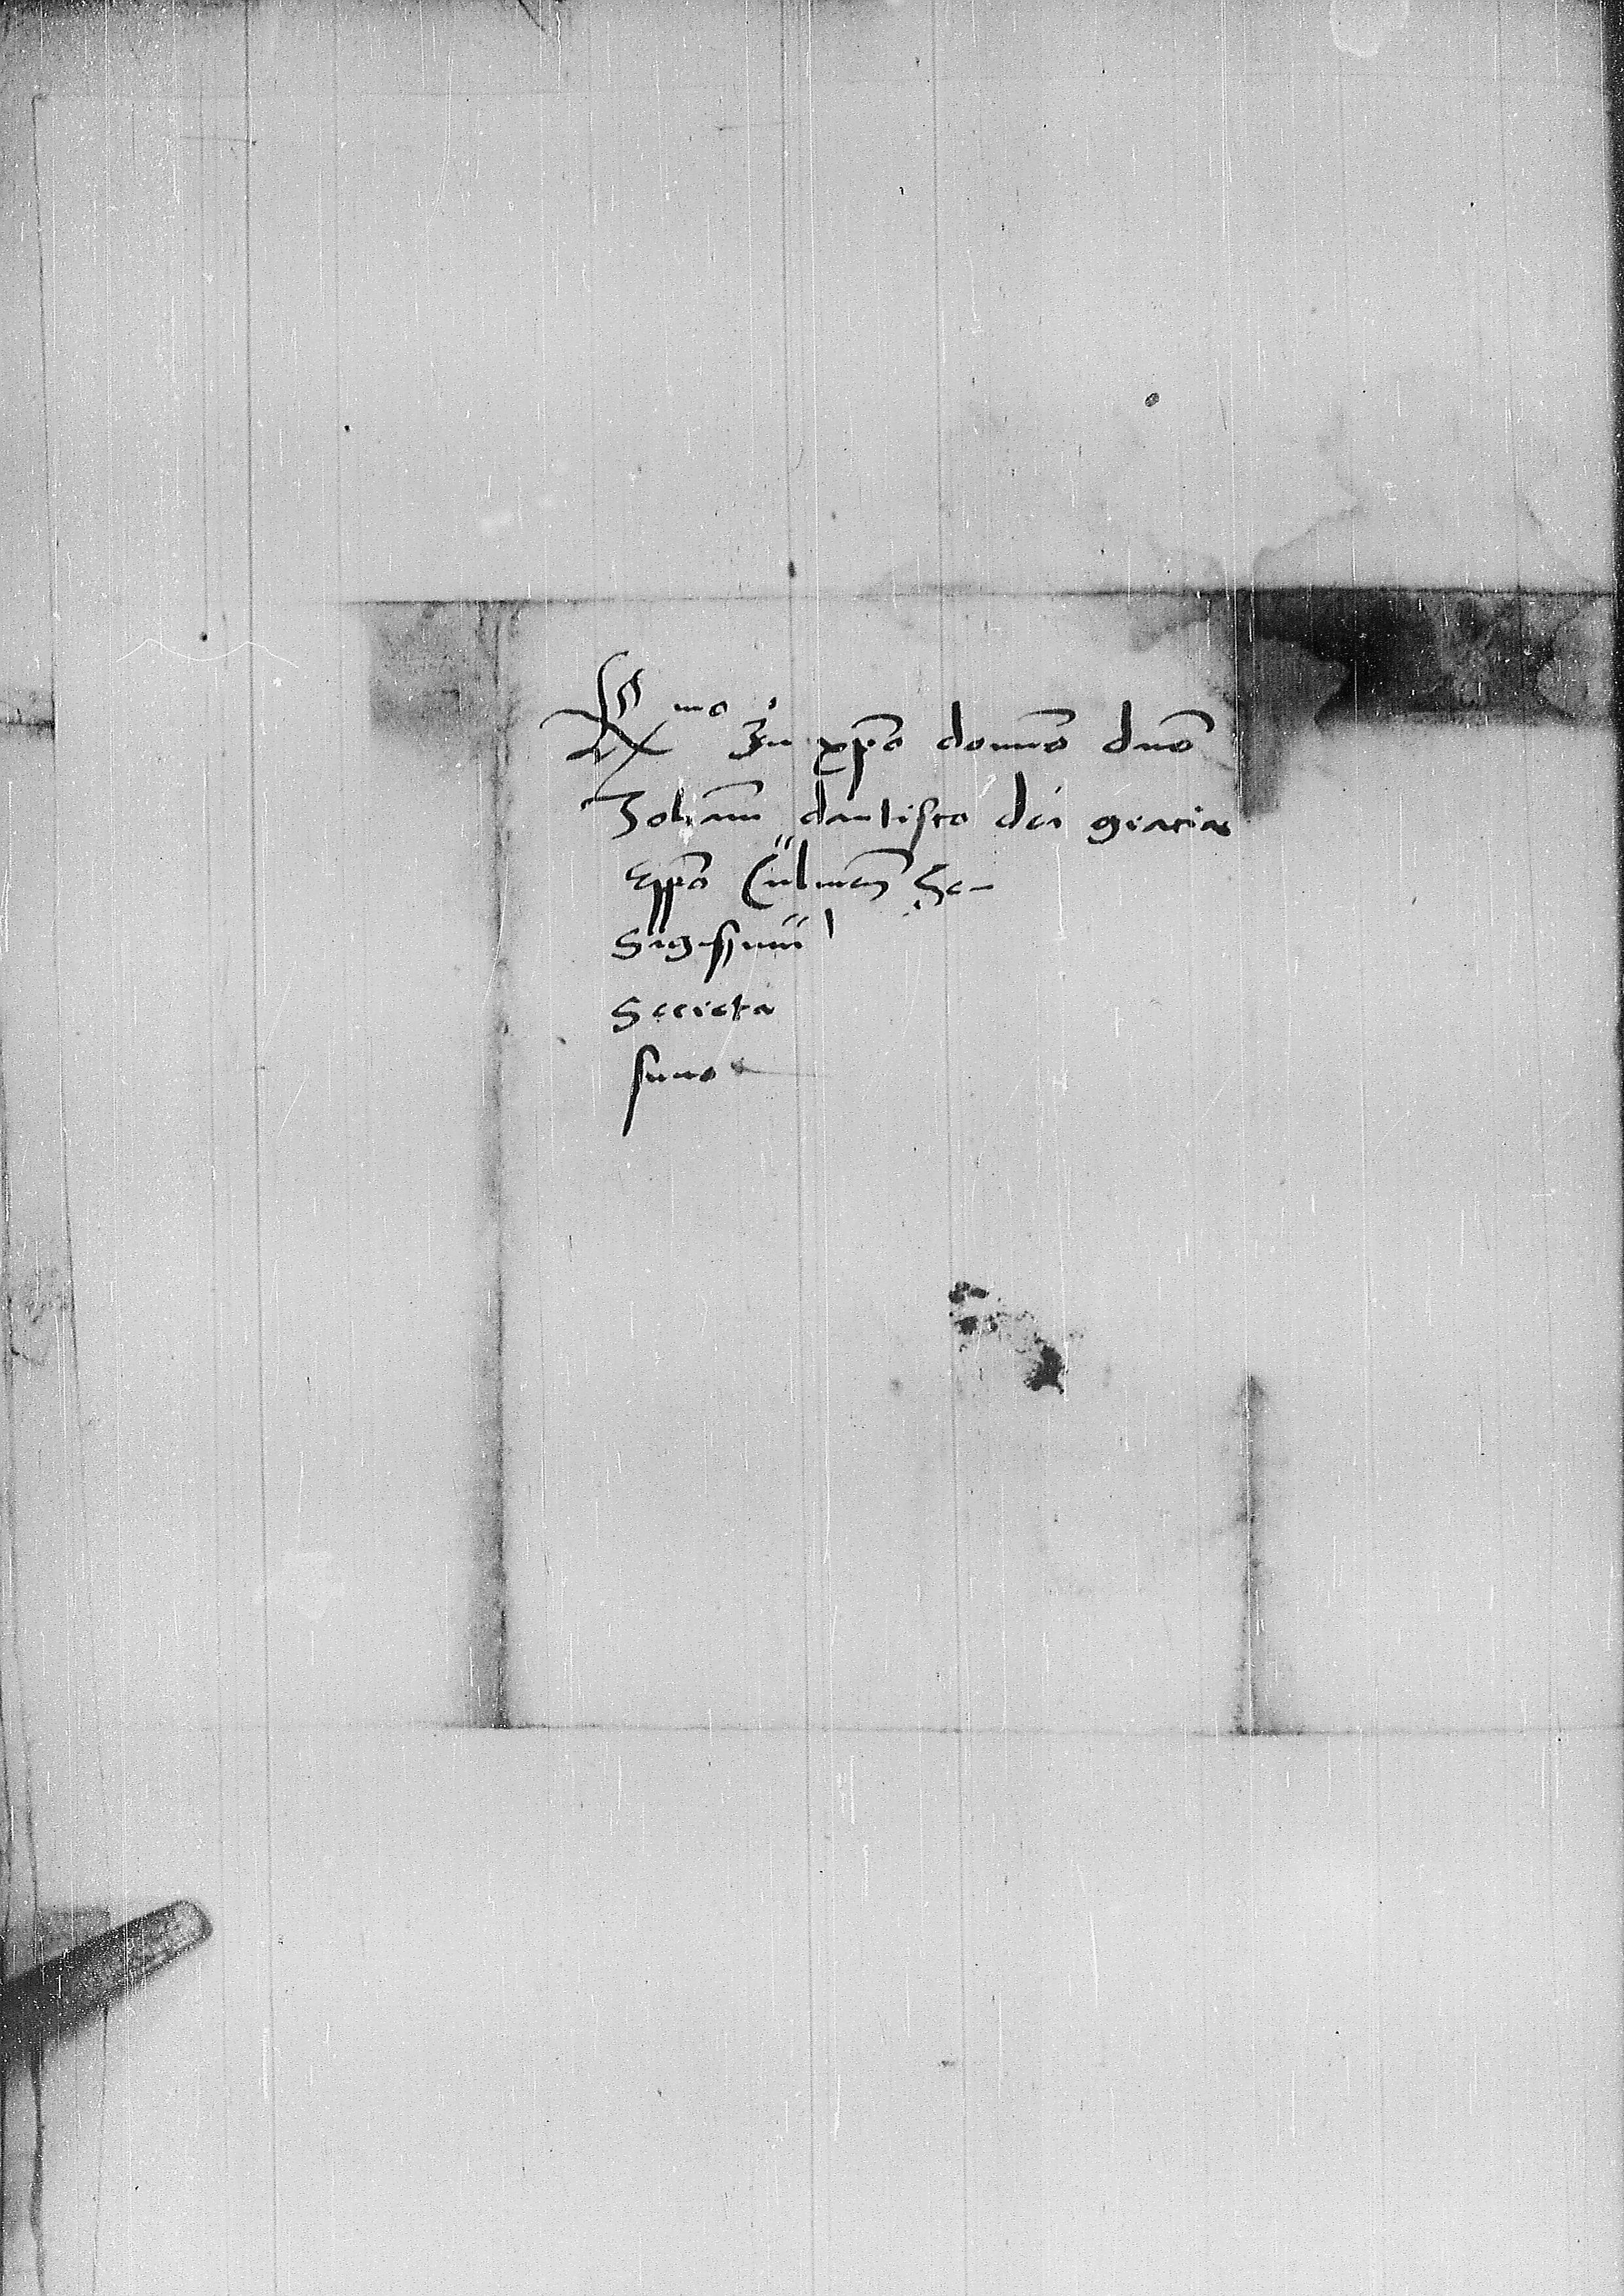 Rmo In xpo domino dno
Johanni dantisco dei gracia
Epo Culmen Se-
Sigissmu
Secreta
suno